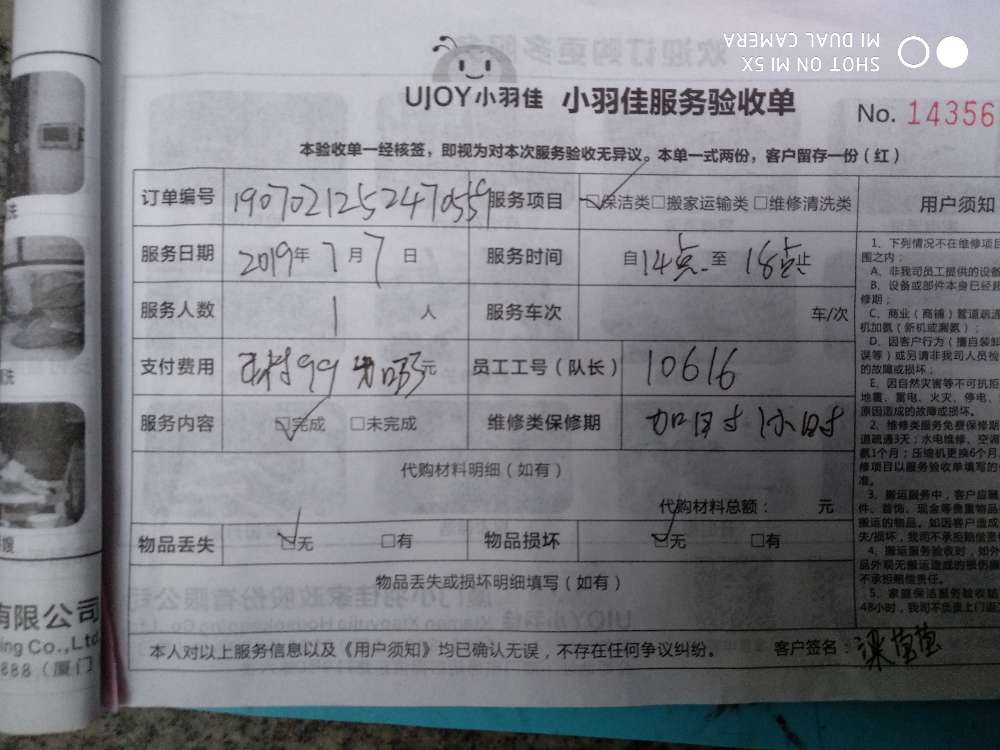 SHOT ON MI 5X
MI DUAL CAMERA
UJOY小羽佳 小羽佳服务验收单
No. 14356
本验收单一经核签，即视为对本次服务验收无异议。本单一式两份，客户留存一份（红）
订单编号 服务项目 保洁类 搬家运输类 维修清洗类 用户须知
服务日期 2019年7月7日 服务时间 自14点至18点止
服务人数 1人 服务车次 车/次
支付费用 99 元 员工工号（队长） 10616
服务内容 完成 未完成 维修类保修期 加时1小时
代购材料明细（如有）
代购材料总额： 元
物品丢失 无 有 物品损坏 无 有
物品丢失或损坏明细填写（如有）
本人对以上服务信息以及《用户须知》均已确认无误，不存在任何争议纠纷。 客户签名：
1、下列情况不在维修项目
围之内：
A、非我司员工提供的设备
B、设备或部件本身已经超
修期；
C、商业（商铺）管道疏通
机加氨（新机或漏氨）；
D、因客户行为（擅自装卸
误等）或另请非我司人员检
的故障或损坏；
E、因自然灾害等不可抗拒
地震、雷电、火灾、停电、
原因造成的故障或损坏。
2、维修类服务免费保修期
道疏通3天；水电维修、空调
氨1个月；压缩机更换6个月
修项目以服务验收单填写的
准。
3、搬运服务中，客户应
件、首饰、现金等贵重物品
搬运的物品。如因客户造成
失/损坏，我司不承担赔偿责
4、搬运服务验收时，如外
品外观无搬运造成的损伤
不承担赔偿责任。
5、家庭保洁服务验收
48小时，我司不负责上门返
有限公司
ing Co.,Ltd
888（厦门